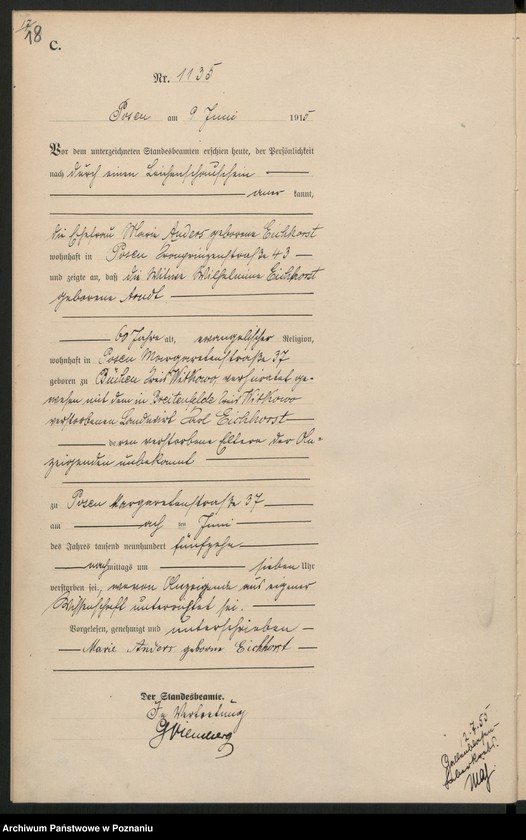 18
C.
Nr. 1135
Posen am 9 Juni 1915
Vor dem unterzeichneten Standesbeamten erschien heute, der Persönlichkeit
nach durch einen Leichenschauschein
aner kannt,
die Ehefrau Marie Anders geborene Eichhorst
wohnhaft in Posen Kronprinzenstraße 43
und zeigte an, daß die Witwe Wilhelmine Eichhorst
geborene Arndt
60 Jahre alt, evangelischer Religion,
wohnhaft in Posen Margaretenstraße 37
geboren zu Büchen Kreis Witkowo, verheiratet ge-
wesen mit dem in Breitenfelde Kreis Witkowo
verstorbenen Landwirt Karl Eichhorst
deren verstorbene Eltern der An-
zeigenden unbekannt
zu Posen Margaretenstraße 37
am acht ten Juni
des Jahres tausend neunhundert fünfzehn
nachmittags um sieben Uhr
verstorben sei, wovon Anzeigende aus eigener
Wissenschaft unterrichtet sei.
Vorgelesen, genehmigt und unterschrieben
Marie Anders geborene Eichhorst
Der Standesbeamte.
In Vertretung
2.7.55
Archiwum Państwowe w Poznaniu